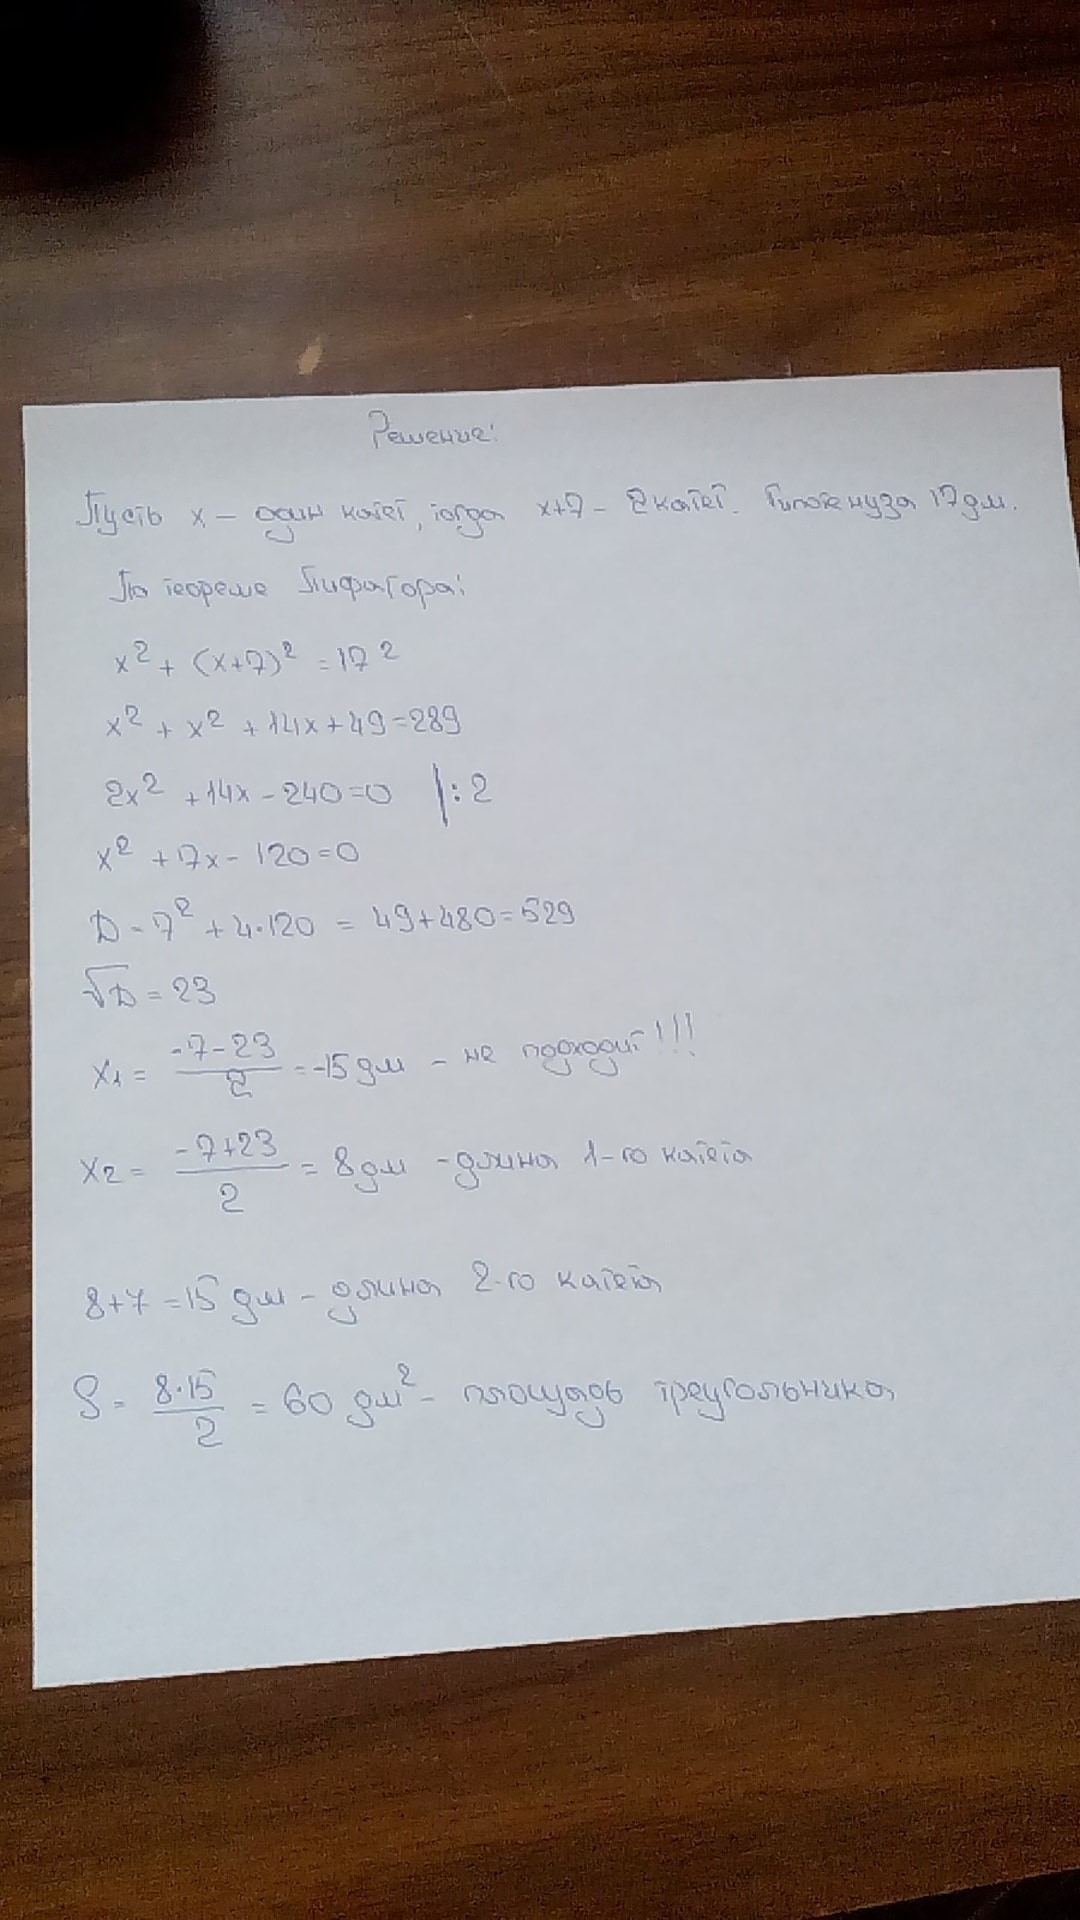 Решение:
Пусть x – один катет, тогда x+7 – 2 катет. Гипотенуза 17 дм.
По теореме Пифагора:
x² + (x+7)² = 17²
x² + x² + 14x + 49 = 289
2x² + 14x - 240 = 0 |: 2
x² + 7x - 120 = 0
D = 7² + 4·120 = 49 + 480 = 529
√D = 23
x₁ = (-7-23)/2 = -15 дм – не подходит!!!
x₂ = (-7+23)/2 = 8 дм - длина 1-го катета
8+7 = 15 дм – длина 2-го катета
S = (8·15)/2 = 60 дм² – площадь треугольника